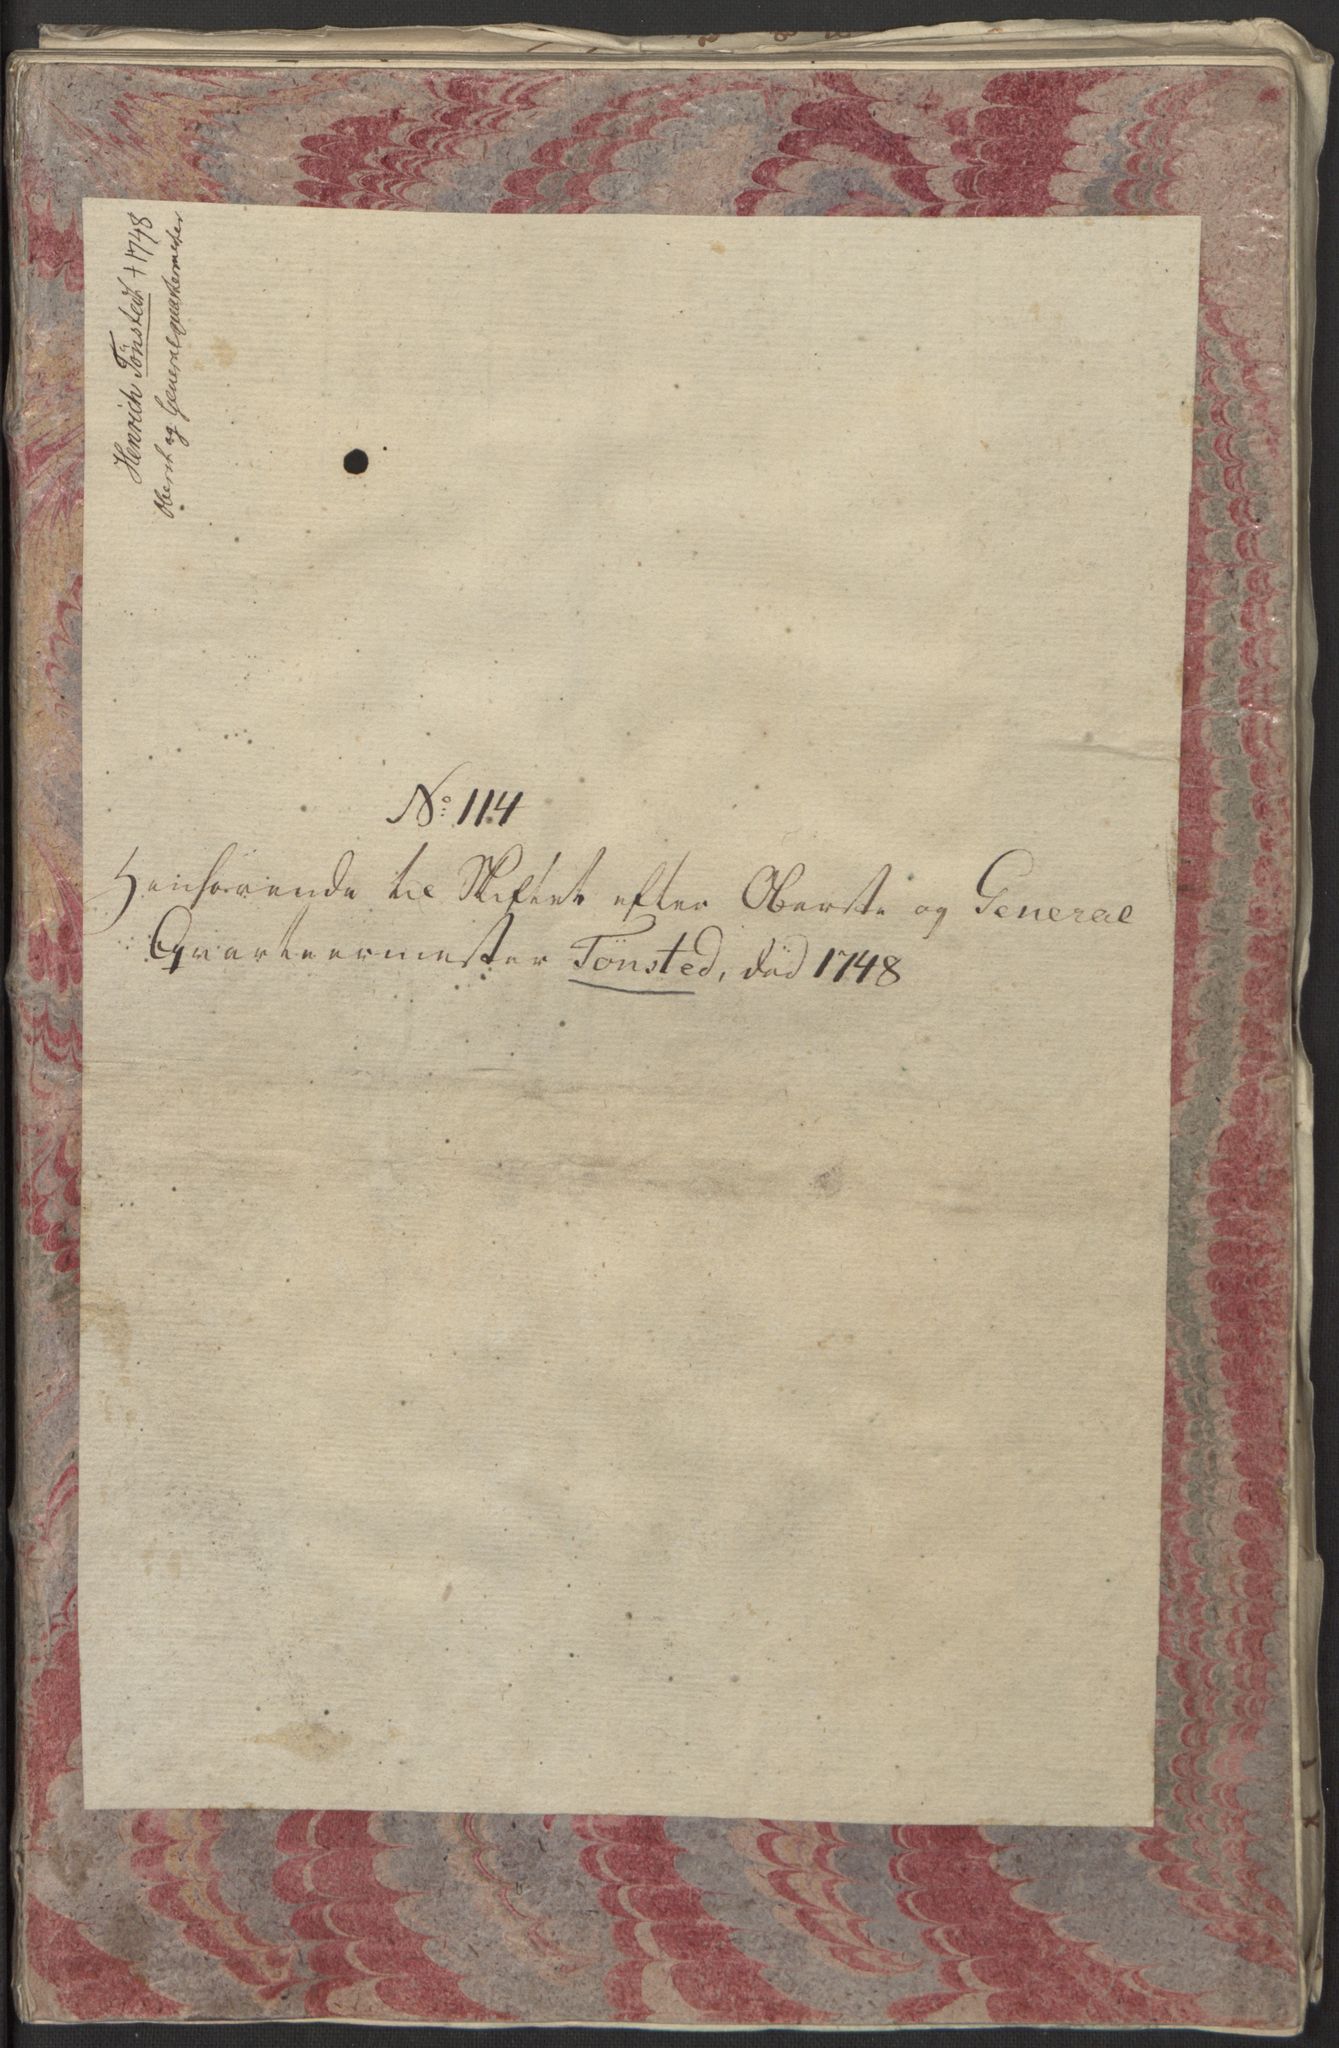 Henrich Tönsted † 1748
Oberst og Generalquartermester
No: 114
Henhørende til Skiftet efter Oberste og General
Qvarteermester Tönsted, død 1748